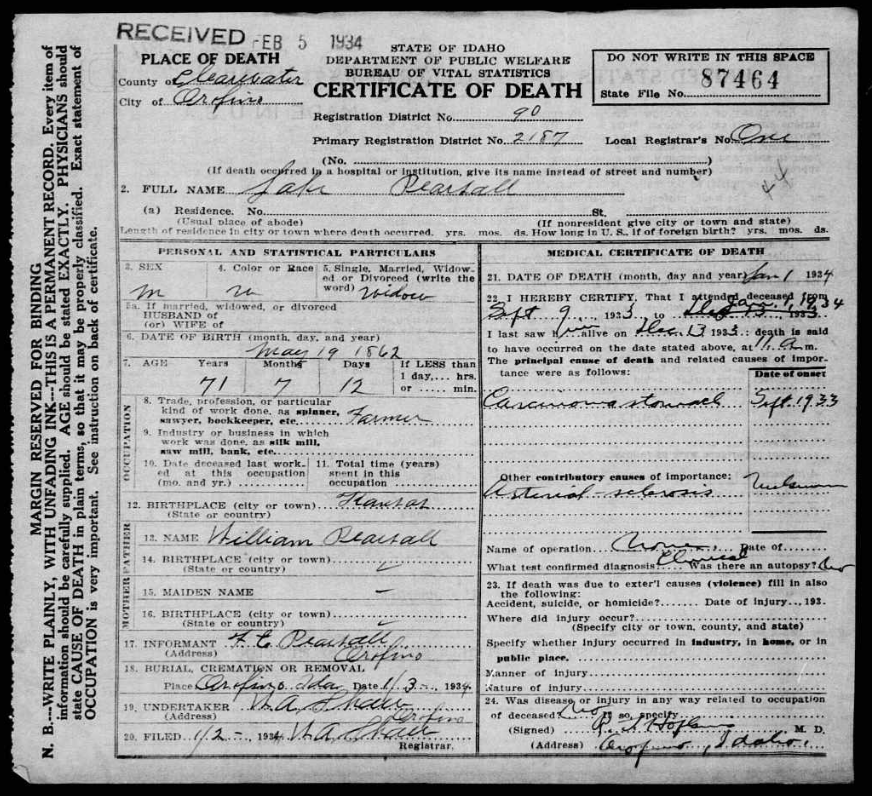 RECEIVED FEB 5 1934
STATE OF IDAHO
DEPARTMENT OF PUBLIC WELFARE
BUREAU OF VITAL STATISTICS
CERTIFICATE OF DEATH
DO NOT WRITE IN THIS SPACE
State File No. 87464
PLACE OF DEATH
County of Clearwater
City of Orofino
Registration District No. 90
Primary Registration District No. 2187 Local Registrar's No. One
(No. )
(If death occurred in a hospital or institution, give its name instead of street and number)
44
2. FULL NAME Jake Pearsall
(a) Residence. No. St.
(Usual place of abode) (If nonresident give city or town and state)
Length of residence in city or town where death occurred. yrs. mos. ds. How long in U. S., if of foreign birth? yrs. mos. ds.
PERSONAL AND STATISTICAL PARTICULARS
3. SEX 4. Color or Race 5. Single, Married, Widowed or Divorced (write the word)
m w widow
5a. If married, widowed, or divorced
HUSBAND of
(or) WIFE of
6. DATE OF BIRTH (month, day, and year)
May 19 1862
7. AGE Years Months Days If LESS than
1 day, hrs.
or min.
71 7 12
OCCUPATION
8. Trade, profession, or particular
kind of work done, as spinner,
sawyer, bookkeeper, etc. Farmer
9. Industry or business in which
work was done, as silk mill,
saw mill, bank, etc.
10. Date deceased last worked at this occupation
(mo. and yr.)
11. Total time (years)
spent in this
occupation
12. BIRTHPLACE (city or town) Kansas
(State or country)
FATHER
13. NAME William Pearsall
14. BIRTHPLACE (city or town)
(State or country)
MOTHER
15. MAIDEN NAME -
16. BIRTHPLACE (city or town)
(State or country)
17. INFORMANT F. C. Pearsall
(Address) Orofino
18. BURIAL, CREMATION OR REMOVAL
Place Orofino Ida Date 1/3-, 1934
19. UNDERTAKER
(Address) Orofino
20. FILED 1/2-, 1934
Registrar.
MEDICAL CERTIFICATE OF DEATH
21. DATE OF DEATH (month, day and year) Jan 1 1934
22. I HEREBY CERTIFY, That I attended deceased from
Sept 9, 1933, to Jan. 1, 1934
I last saw him alive on Dec. 13 1933: death is said
to have occurred on the date stated above, at 11 a m.
The principal cause of death and related causes of importance were as follows:
Date of onset
Carcinoma stomach Sept. 1933
Other contributory causes of importance:
Arterial-sclerosis Unknown
Name of operation None Date of
What test confirmed diagnosis? Clinical Was there an autopsy? No
23. If death was due to exter'l causes (violence) fill in also
the following:
Accident, suicide, or homicide? Date of injury , 193
Where did injury occur?
(Specify city or town, county, and state)
Specify whether injury occurred in industry, in home, or in
public place.
Manner of injury
Nature of injury
24. Was disease or injury in any way related to occupation
of deceased? No If so, specify
(Signed) M. D.
(Address) Orofino, Idaho.
MARGIN RESERVED FOR BINDING
N. B.---WRITE PLAINLY, WITH UNFADING INK---THIS IS A PERMANENT RECORD. Every item of
information should be carefully supplied. AGE should be stated EXACTLY. PHYSICIANS should
state CAUSE OF DEATH in plain terms, so that it may be properly classified. Exact statement of
OCCUPATION is very important. See instruction on back of certificate.